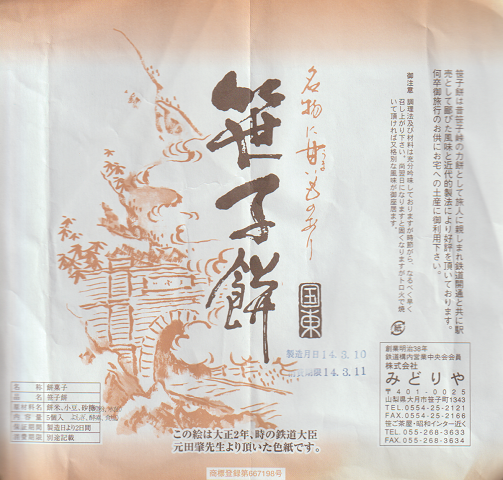 笹子餅は昔笹子峠の力餅として旅人に親しまれ鉄道開通と共に駅
売として鄙びた風味と近代的製法により好評を頂いております。
何卒御旅行のお供にお宅への土産に御利用下さい。
御注意 調理法及び材料は充分吟味しておりますが時節がら、なるべく早く
召し上がり下さい。尚翌日になりますと固くなりますがトロ火で焼
いて頂ければ又格別な風味が御座居ます。
名物に甘いものあり
笹子餅
国東
製造月日14.3.10
14.3.11
創業明治38年
鉄道構内営業中央会会員
株式会社
みどりや
〒401-0025
山梨県大月市笹子町1343
TEL.0554-25-2121
FAX.0554-25-2166
笹ご茶屋・昭和インター近く
TEL.055-268-3633
FAX.055-268-3634
名称 餅菓子
品名 笹子餅
原材料名 餅米、小豆、砂糖
内容量 5個入
保証期間 製造日より2日間
消費期限 別途記載
この絵は大正2年、時の鉄道大臣
元田肇先生より頂いた色紙です。
商標登録第667198号